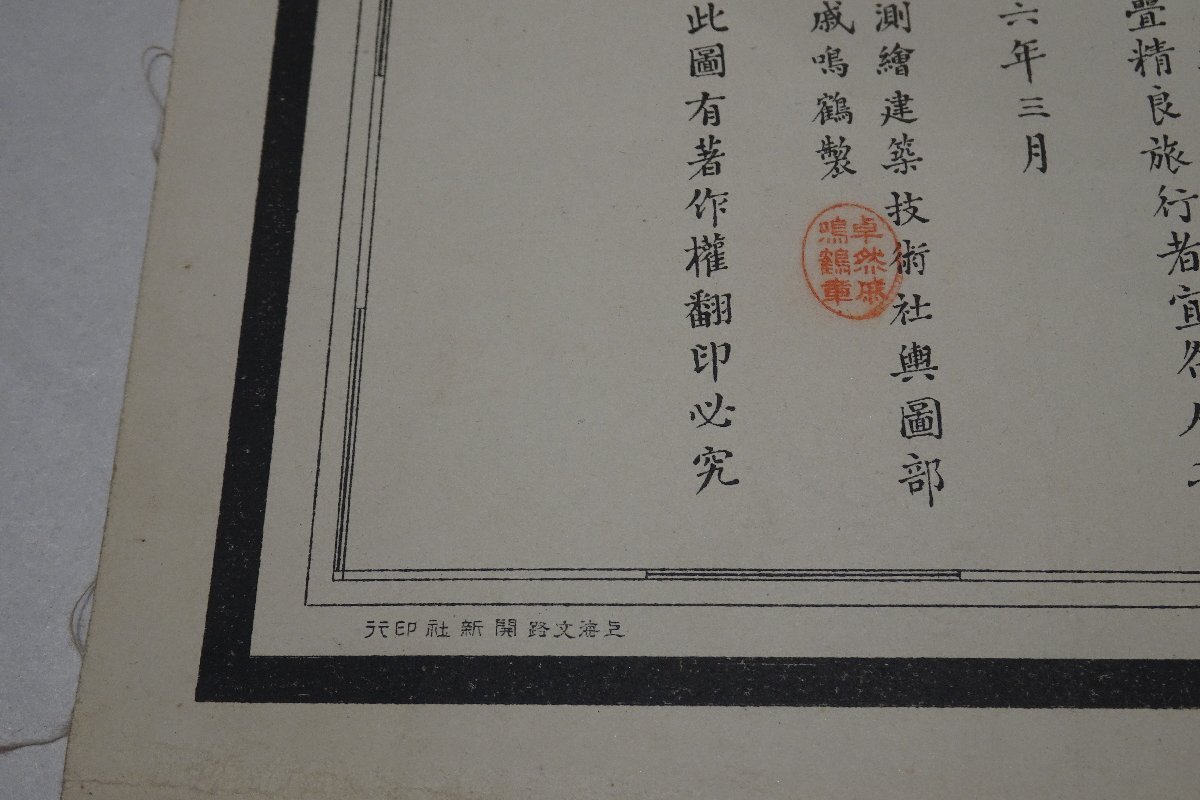 疊精良旅行者宜各
六年三月
測繪建築技術社輿圖部
戚鳴鶴製
卓然戚
鳴鶴章
此圖有著作權翻印必究
上海文路開新社印行